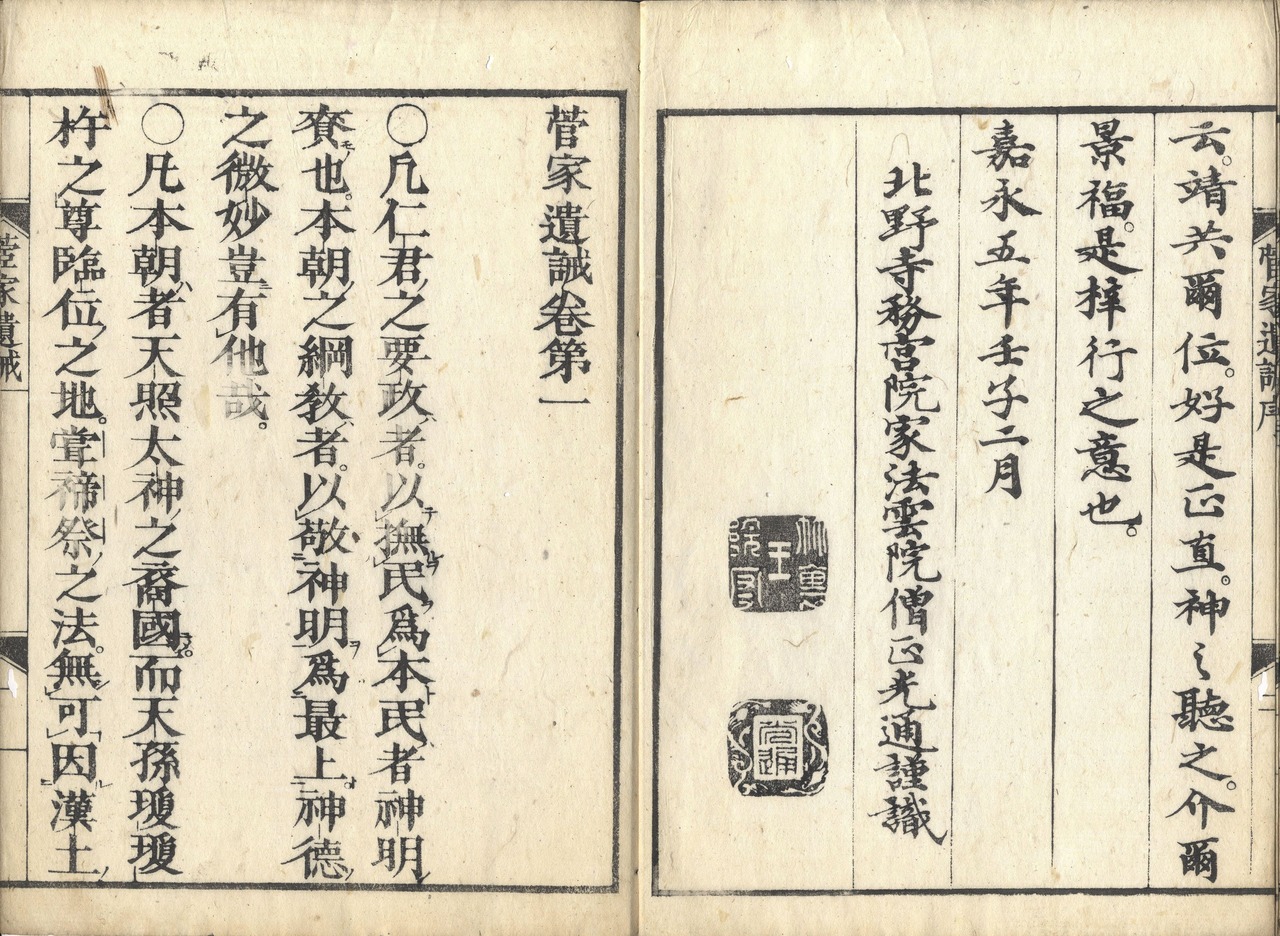 菅家遺誡序
云。靖共爾位。好是正直。神之聽之。介爾
景福。是梓行之意也。
嘉永五年壬子二月
北野寺務宮院家法雲院僧正光通謹識
光通
菅家遺誡卷第一
〇凡仁君之要政者。以撫民爲本民者神明
賚也。本朝之綱敎者。以敬神明爲最上。神德
之微妙豈有他哉。
〇凡本朝者天照太神之裔國。而天孫瓊瓊
杵之尊臨位之地。甞禘祭之法。無可因漢土
菅家遺誡